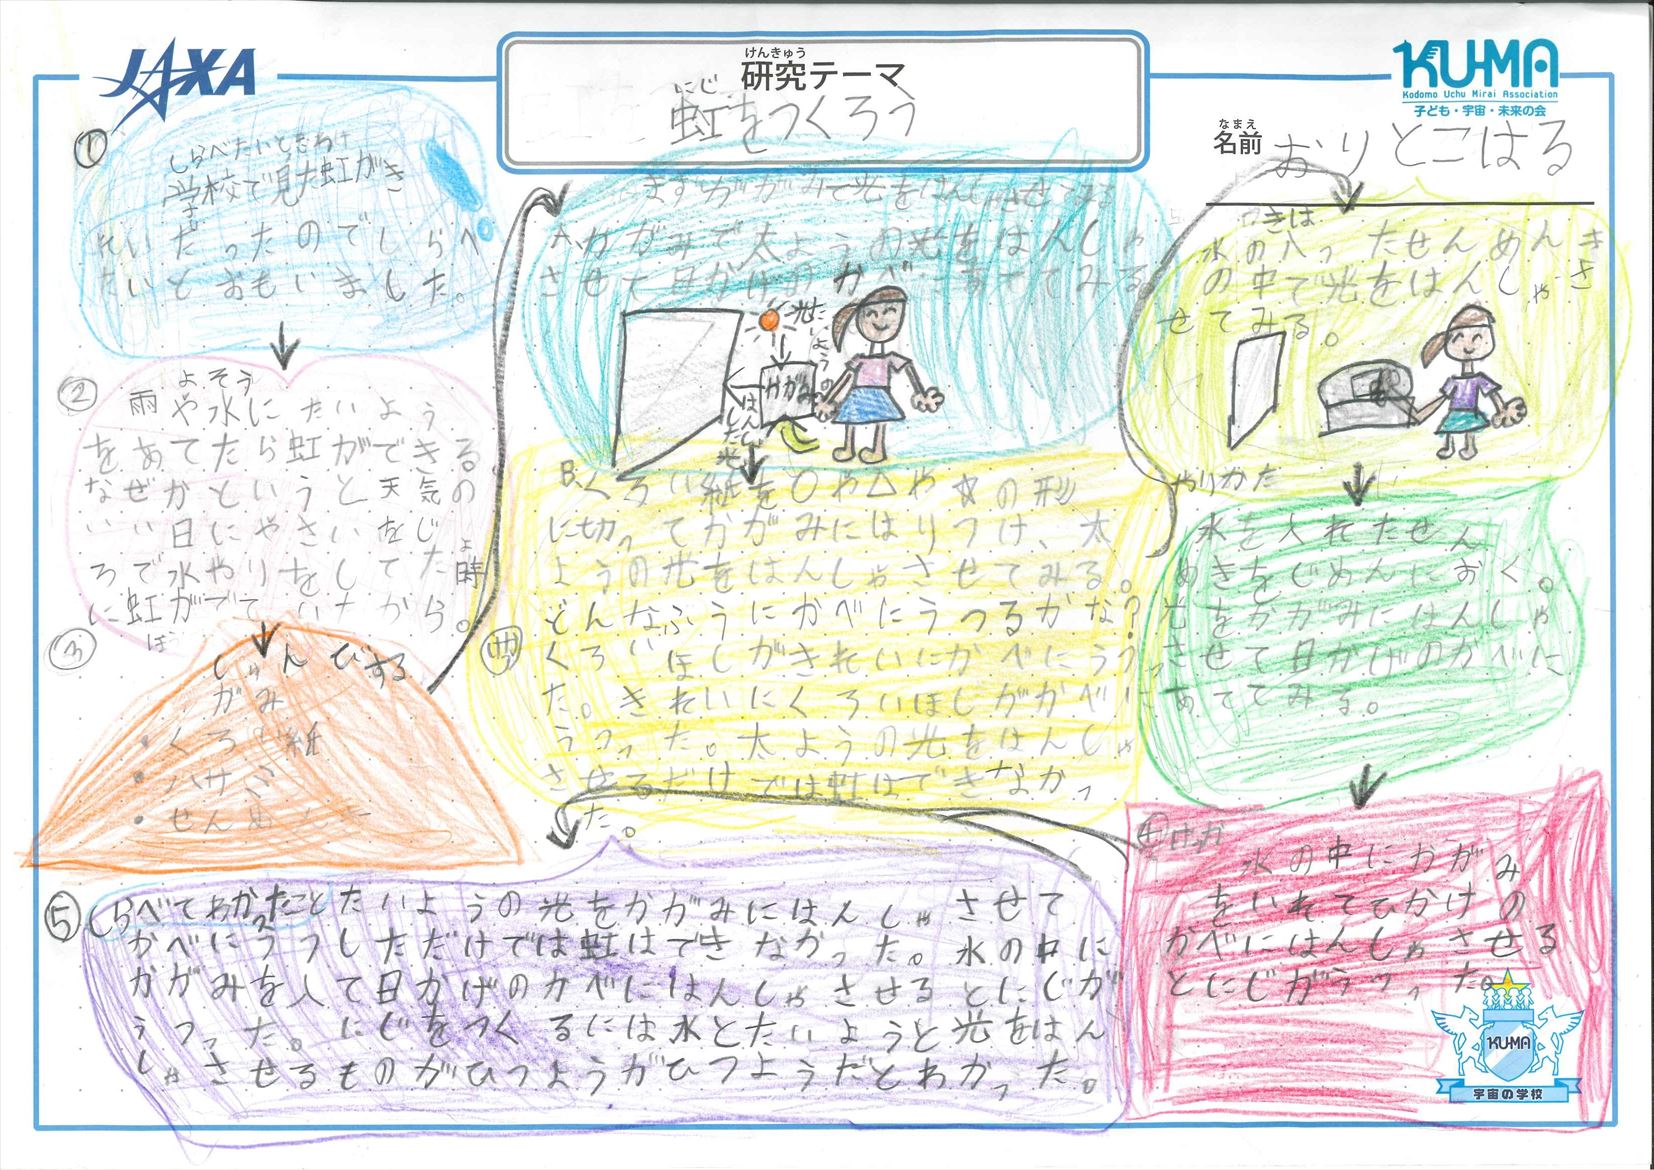 JAXA
けんきゅう
研究テーマ
にじ
虹をつくろう
KU-MA
Kodomo Uchu Mirai Association
子ども・宇宙・未来の会
なまえ
名前 おりとこはる
①
しらべたいときわけ
学校で見た虹がき
れいだったのでしらべ
たいとおもいました。
②
よそう
雨や水にたいよう
をあてたら虹ができる
なぜかというと天気の
いい日にやさいをじょ
ろで水やりをしてた時
に虹がでていたから。
③
じゅんびする
がみ
・くろい紙
・ハサミ
・せんめ
まずかがみで光をはんしゃさせてみる
A、かがみで太ようの光をはんしゃ
させて日かげのかべにあててみる
光 たいようの
かがみ
はんしゃした光
B、くろい紙を○や△や☆の形
に切ってかがみにはりつけ、太
ようの光をはんしゃさせてみる。
どんなふうにかべにうつるかな?
くろいほしがきれいにかべにうつっ
た。きれいにくろいほしがかべに
うつった。太ようの光をはんしゃ
させるだけでは虹はできなかっ
た。
水の入ったせんめんき
の中で光をはんしゃさ
せてみる。
やりかた
水を入れたせん
めきをじめんにおく。
光をかがみにはんしゃ
させて日かげのかべに
あててみる。
④けっか
水の中にかがみ
をいれてひかけの
かべにはんしゃさせる
とにじがうつった。
⑤しらべてわかったことたいようの光をかがみにはんしゃさせて
かべにうつしただけでは虹はできなかった。水の中に
かがみを入て日かげのカベにはんしゃさせるとにじが
うつった。にじをつくるには水とたいようと光をはん
しゃさせるものがひつようがひつようだとわかった。
KU-MA
宇宙の学校